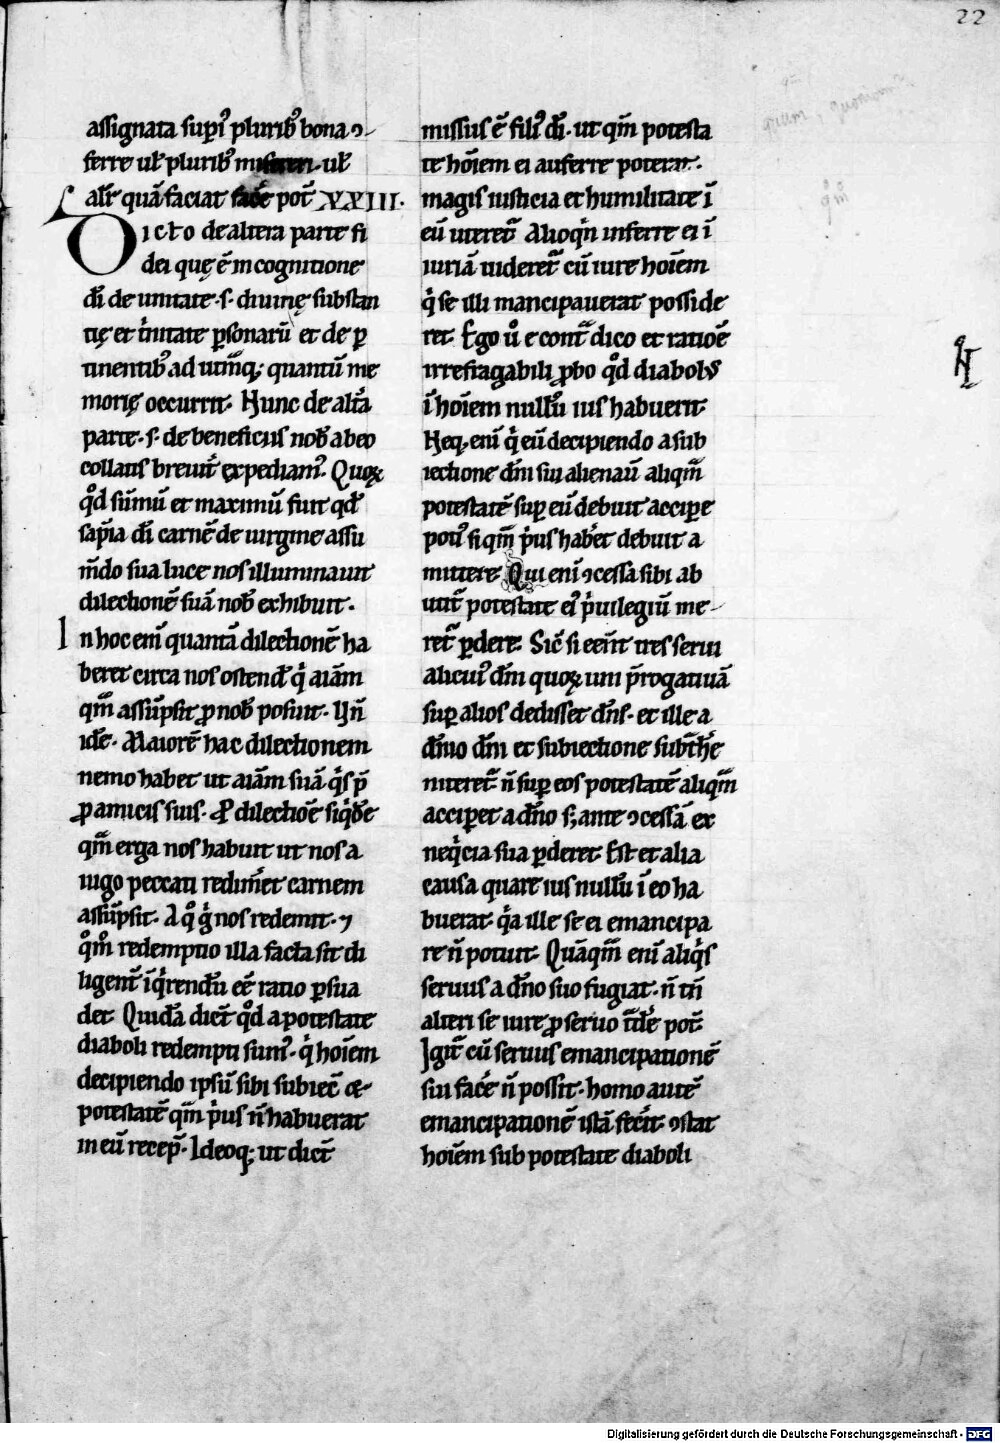 22
assignata supi᷒ plurib᷒ bona ꝯ-
ferre ul̄ plurib᷒ misereri· ul̄
alit̄ quā faciat fac̄e pot̄ XXIII·
Dicto de altera parte fi
dei quę ē in cognitione
dī de unitate ·s· diuinę substan
tię et t̓nitate ꝑsonarū et de ꝑ
tinentib᷒ ad utrūq; quantū me
morię occurrit· Hunc de alt̄a
parte ·s· de beneficiis nob̄ a deo
collatis breuit̄ expediam᷒. Quoꝝ
qͦd sūmū et maximū fuit qd̄
sap̄ia dī carnē de uirgine assu
m̄do sua luce nos illuminauit
dilectionē suā nob̄ exhibuit·
In hoc enī quantā dilectionē ha
beret circa nos ostend̄ qⁱ aīam
qm̄ assūpsit ꝓ nob̄ posuit· Un̄
id̄e· Maiorē hac dilectionem
nemo habet ut aīam suā qⁱs p̄
ꝓ amicis suis· P dilectiōe siqⁱd̄e
qm̄ erga nos habuit ut nos a
iugo peccati redim̄et carnem
assūpsit· A qͦ gⁱ nos redemit· ⁊
qͦm̊ redemptio illa facta sit di
ligent̄ īqⁱrendū eē ratio ꝑsua
det· Quidā dict̄ qͦd a potestate
diaboli redempti sum᷒· qⁱ hoīem
decipiendo ipsū sibi subiec̄ ⁊-
potestatē qm̄ pⁱus n̄ habuerat
in eū recep̄· Ideoq; ut dict̄
missus ē fili᷒ dī· ut qm̄ potesta
te hoīem ei auferre poterat·
magis iusticia et humilitate ī
eū uteret᷑ Alioqⁱn inferre ei ī
iuriā uideret᷑ cū iure hoīem
qⁱ se illi mancipauerat posside
ret· Ego uͦ e cont᷑ dico et ratiōe
irrefragabili ꝓbo qͦd diabolus
ī hoīem nullū ius habuerit·
Neq; enī qⁱ eū decipiendo a sub
iectione dn̄i sui alienauit aliqm̄
potestatē suꝑ eū debuit accipere
poti᷒ si qm̄ pⁱus hab̄et debuit a
mittere Qui enī ꝯcessa sibi ab
utit᷑ potestate ei᷒ pⁱuilegiū me-
ret᷑ ꝑdere· Sic̄ si eēnt tres serui
alicui᷒ dn̄i quoꝝ uni p̄rogatiuā
suꝑ alios dedisset dn̄s· et ille a
dn̄io dn̄i et subiectione subt᷑he
niteret᷑ n̄ suꝑ eos potestatē aliqm̄
acciperet a dn̄o s; ante ꝯcessā ex
neqⁱcia sua ꝑderet· Est et alia
causa quare ius nullū ī eo ha
buerat· qⁱa ille se ei emancipa
re n̄ potuit· Quāqm̄ enī aliqⁱs
seruus a dn̄o suo fugiat· n̄ tn̄
alteri se iure ꝓ seruo t᷑de pot̄·
Igit᷑ cū seruus emancipationē
sui fac̄e n̄ possit· homo autē
emancipationē istā fec̄it· ꝯstat
hoīem sub potestate diaboli